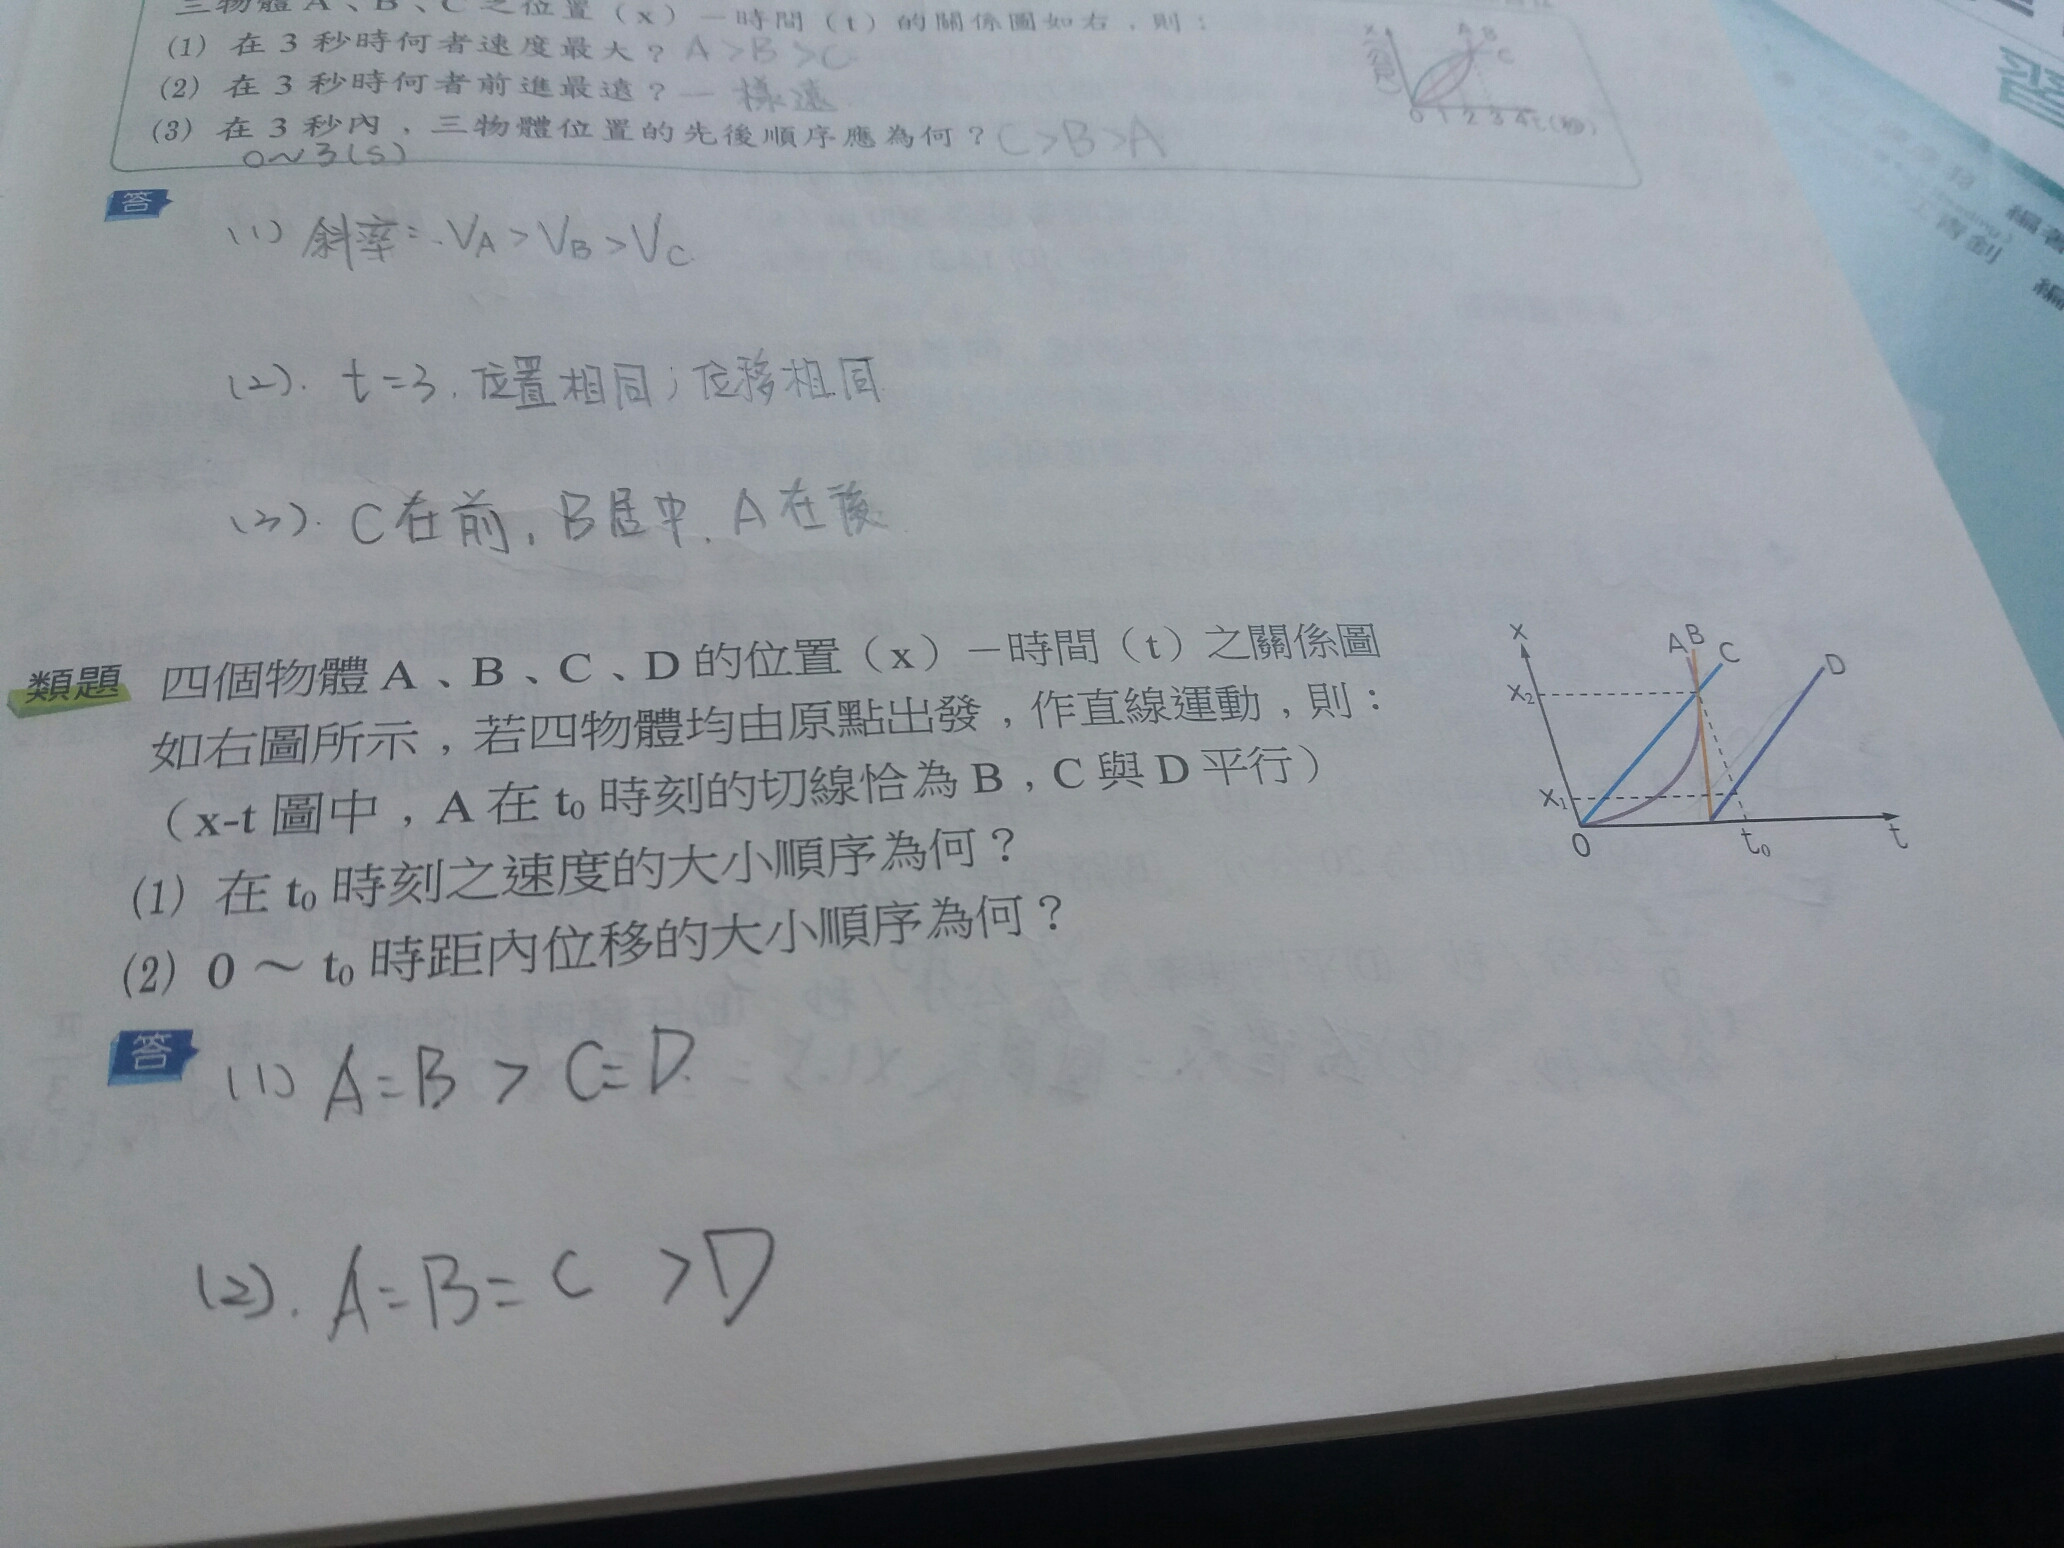 三物體 A、B、C 之位置（x）－時間（t）的關係圖如右，則：
(1) 在 3 秒時何者速度最大？ A>B>C
(2) 在 3 秒時何者前進最遠？ 一樣遠
(3) 在 3 秒內，三物體位置的先後順序應為何？ C>B>A
0~3(s)
x
A B
C
0 1 2 3 4 t(秒)
答
(1) 斜率: VA > VB > VC
(2). t=3. 位置相同; 位移相同
(3). C在前, B居中, A在後
類題 四個物體 A、B、C、D 的位置（x）－時間（t）之關係圖
如右圖所示，若四物體均由原點出發，作直線運動，則：
（x-t 圖中，A 在 t₀ 時刻的切線恰為 B，C 與 D 平行）
(1) 在 t₀ 時刻之速度的大小順序為何？
(2) 0 ～ t₀ 時距內位移的大小順序為何？
x
A B C D
x₂
x₁
0 t₀ t
答 (1) A=B > C=D
(2). A=B=C >D
習
編著
編